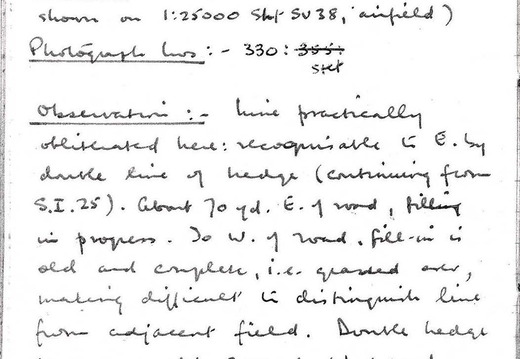 shown on 1:25000 Sht SU38, airfield)
Photograph Nos :- 330: 355:
stet
Observation :- Line practically
obliterated here: recognisable to E. by
double line of hedge (continuing from
S.I.25). About 70 yd. E. of road, filling
in progress. To W. of road, fill-in is
old and complete, i.e. grassed over,
making difficult to distinguish line
from adjacent field. Double hedge